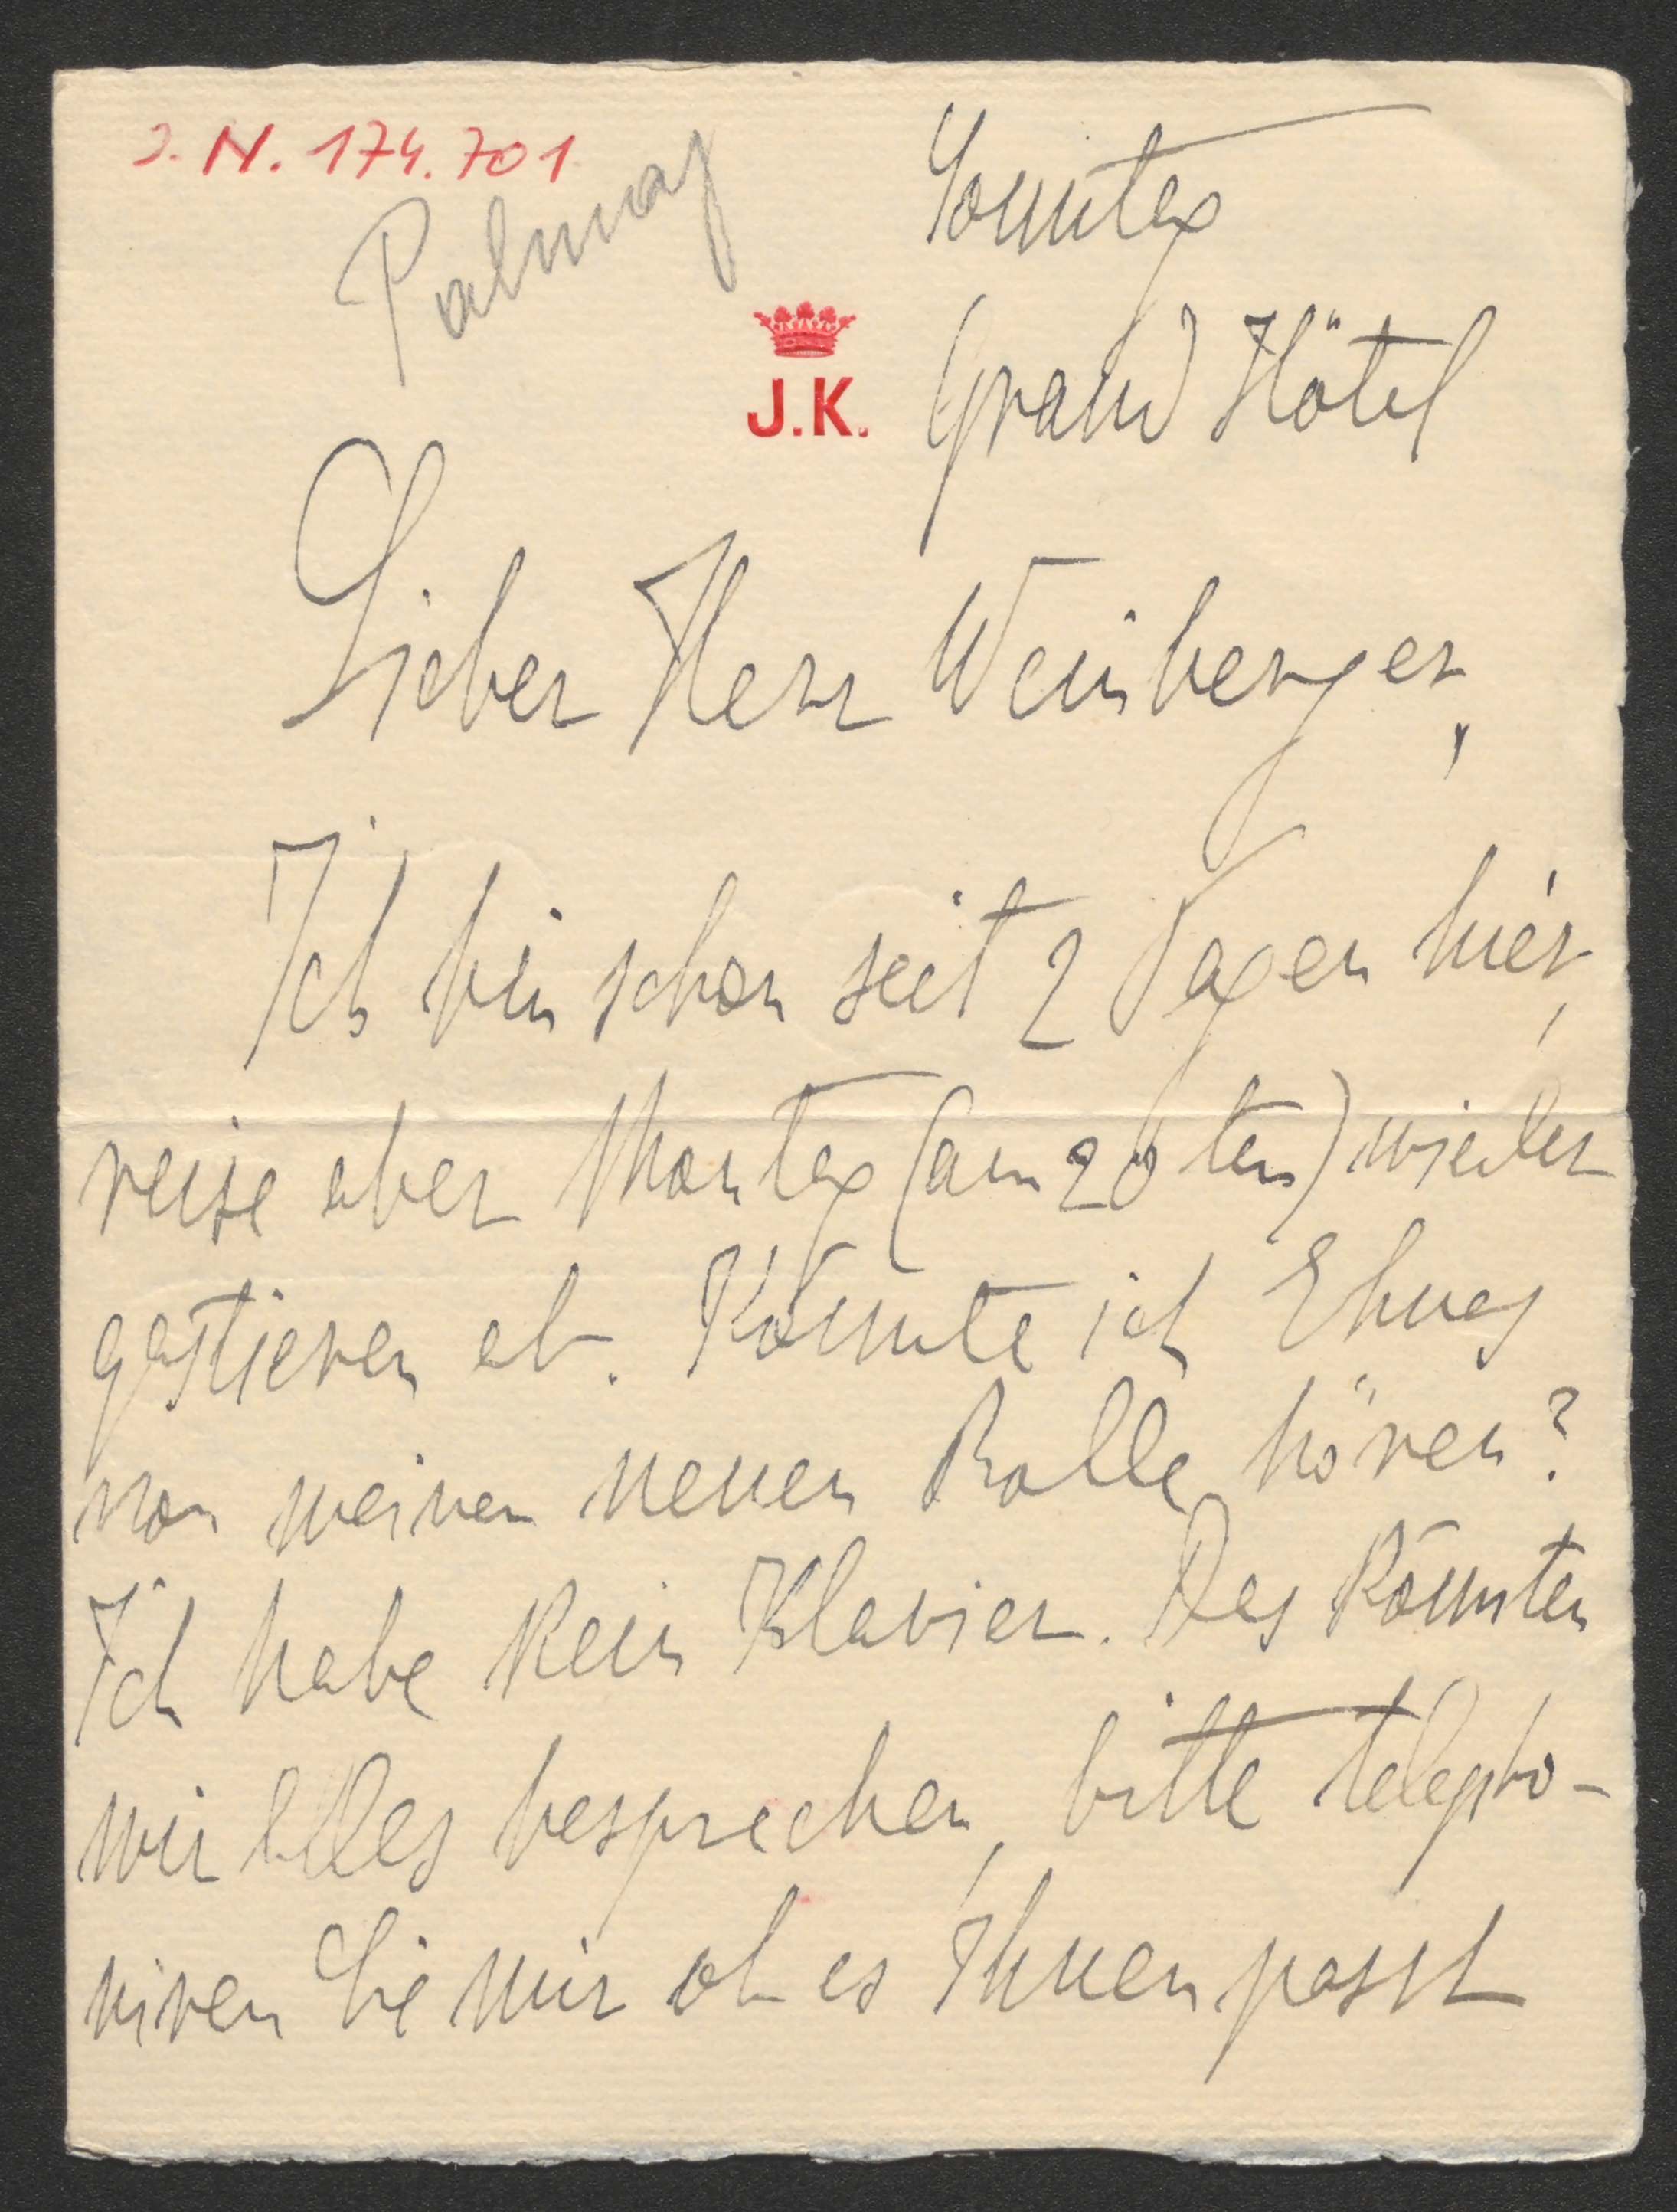 J. N. 174.701
Palmay
Sonntag
J.K.
Grand Hôtel
Lieber Herr Weinberger,
Ich bin schon seit 2 Tagen hier,
reise aber Montag (am 20ten) wieder
gastieren ab. Könnte ich Etwas
von meiner neuen Rolle hören?
Ich habe kein Klavier. Das könnten
wir Alles besprechen, bitte telepho-
niren Sie mir ob es Ihnen passt